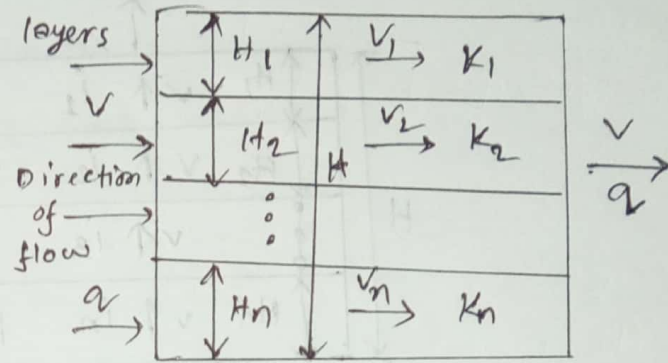 layers
V
Direction
of
flow
q
H1
V1
K1
H2
V2
K2
H
Hn
Vn
Kn
V
q